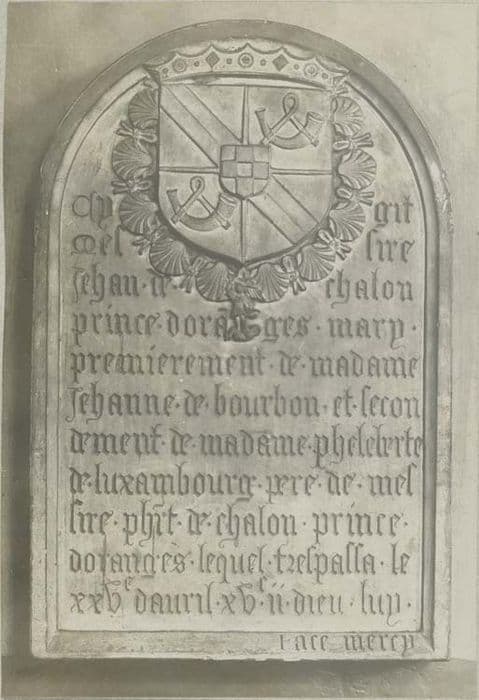 Cy gist
Messire
Jehan de chalon
prince dorānges · mary ·
premierement · de · madame
Jehanne · de · bourbon · et · secon
dement · de · madame · pheleberte
de · luxambourg · pere · de · mes
sire · phīt · de · chalon · prince ·
doranges · lequel · trespassa · le
xxvᵉ dauril · xvᶜ · ii · dieu · luy ·
face mercy